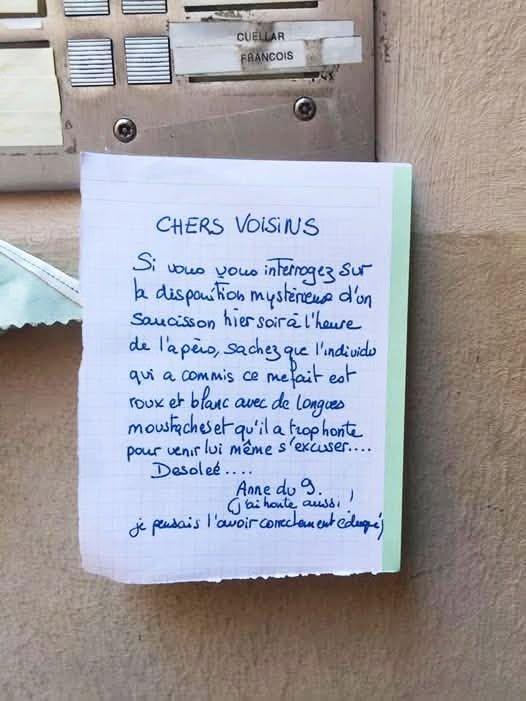 CUELLAR
FRANCOIS
CHERS VOISINS
Si vous vous interrogez sur
la disparition mystérieuse d'un
saucisson hier soir à l'heure
de l'apéro, sachez que l'individu
qui a commis ce mefait est
roux et blanc avec de longues
moustaches et qu'il a trop honte
pour venir lui même s'excuser....
Desoleé....
Anne du 9.
(j'ai honte aussi !
je pensais l'avoir correctement eduqué)